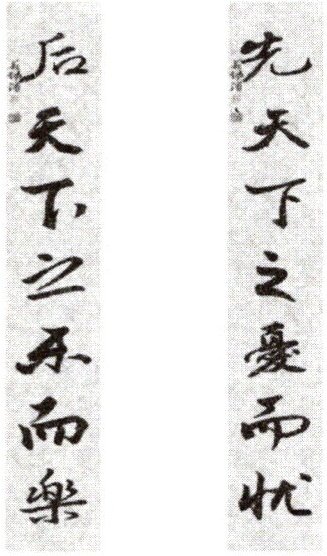 先天下之憂而忧
后天下之乐而樂